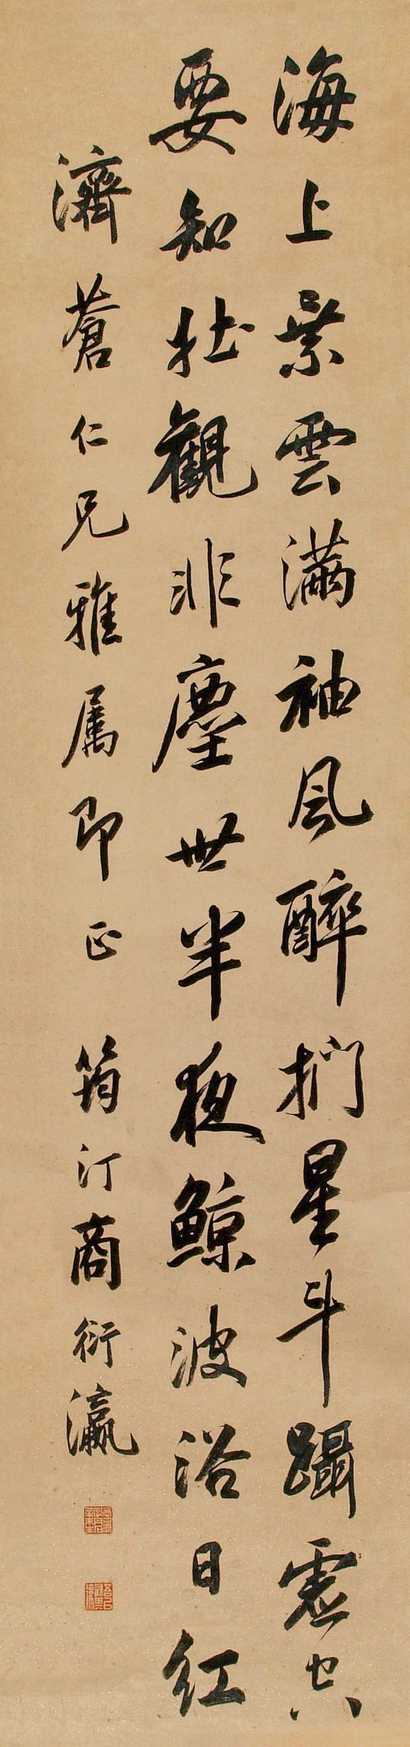 海上乘雲滿袖風醉捫星斗躡虛空
要知壯觀非塵世半夜鯨波浴日紅
濟蒼仁兄雅属即正 筠汀商衍瀛